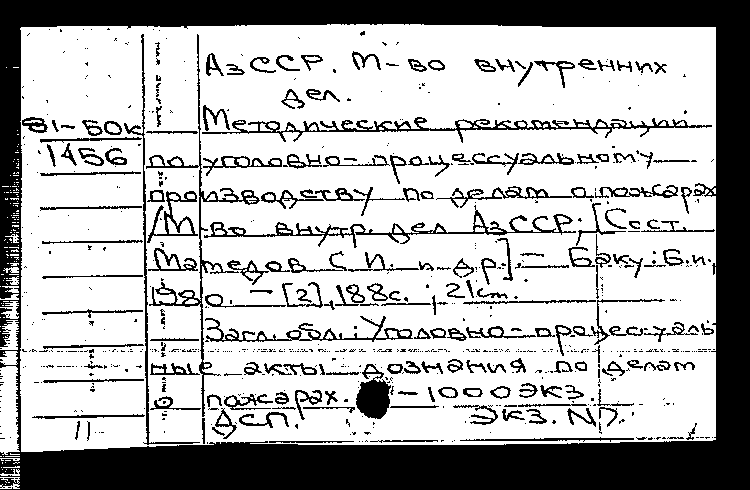 АзССР. М-во внутренних
дел.
81-БОК
1456
Методические рекомендации
по уголовно-процессуальному
производству по делам о пожарах
/М-во внутр. дел АзССР; [Сост.
Мамедов С.И. и др.]. — Баку: Б.и.,
1980. — [2], 188с. ; 21см.
Загл. обл.: Уголовно-процессуаль-
ные акты дознания по делам
о пожарах. — 1000 экз.
ДСП. ЭКЗ. №
11